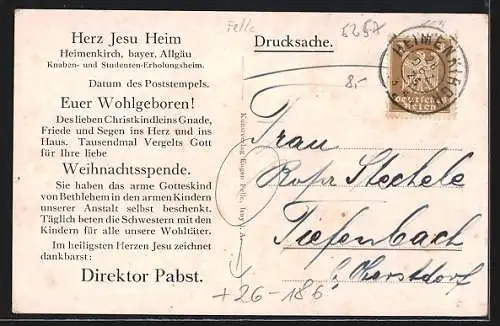 Felle
525A
Herz Jesu Heim
Heimenkirch, bayer. Allgäu
Knaben- und Studenten-Erholungsheim.
Datum des Poststempels.
Euer Wohlgeboren!
Des lieben Christkindleins Gnade,
Friede und Segen ins Herz und ins
Haus. Tausendmal Vergelts Gott
für Ihre liebe
Weihnachtsspende.
Sie haben das arme Gotteskind
von Bethlehem in den armen Kindern
unserer Anstalt selbst beschenkt.
Täglich beten die Schwestern mit den
Kindern für alle unsere Wohltäter.
Im heiligsten Herzen Jesu zeichnet
dankbarst:
Direktor Pabst.
Kunstverlag Eugen Felle, Isny i. A.
Drucksache.
8,-
HEIMENKIRCH
Deutsches
Reich
Frau
Stechele
Tiefenbach
b/Oberstdorf
+26-186